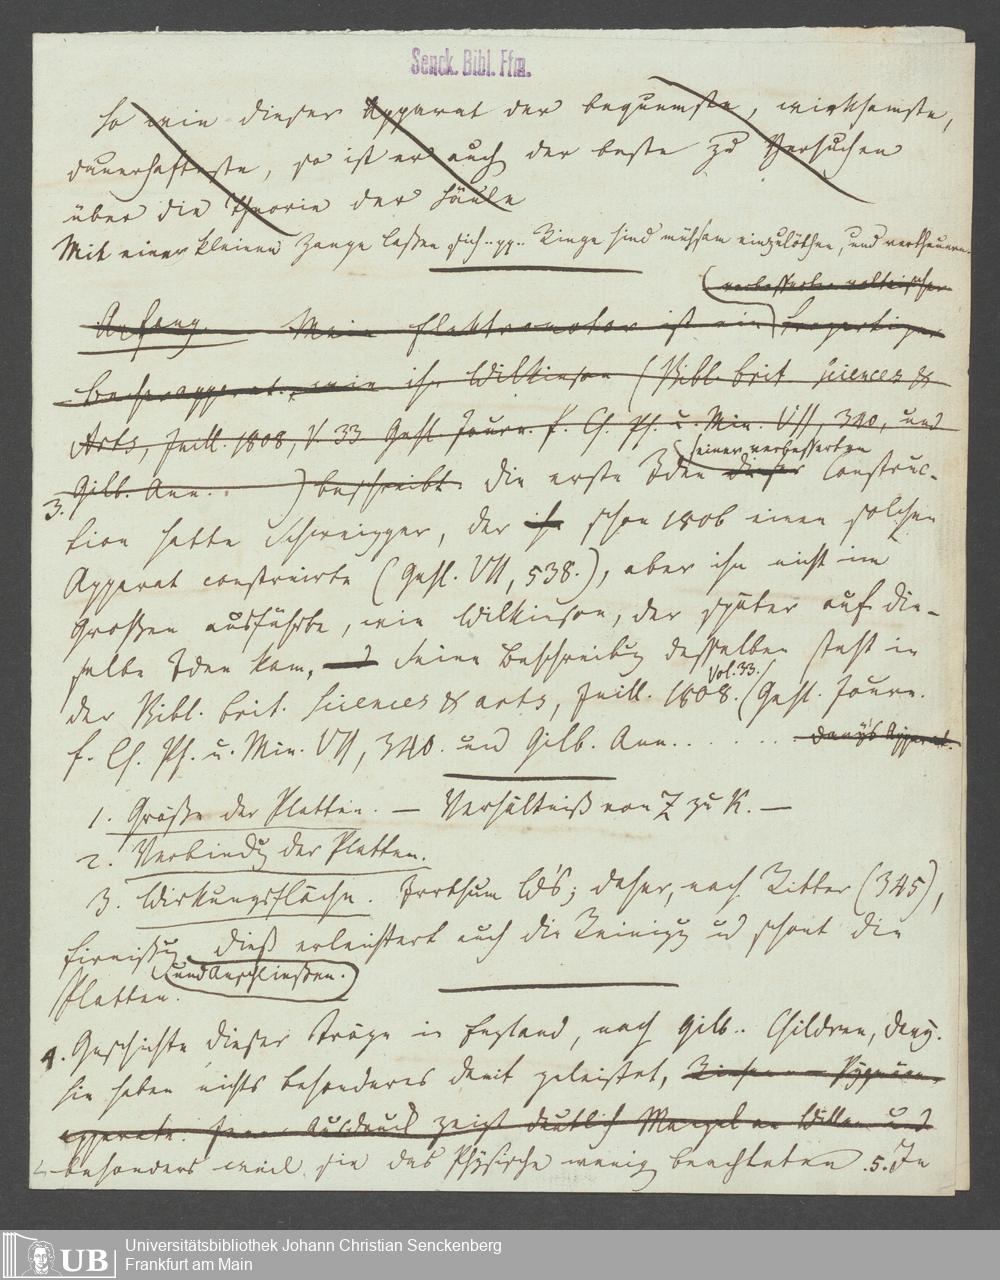 Senck. Bibl. Ffm.
So wie dieser Apparat der bequemste, wirksamste,
dauerhafteste, so ist er auch der beste zu Versuchen
über die Theorie der Säule
Mit einer kleinen Zange laßen sich .. pp .. Ringe sind mühsam einzulöthen, und vertheuern
verbesserter voltaischer
Anfang. Mein Elektromotor ist ein
Becherapparat, wie ihn Wilkinson (Bibl. brit. Sciences &
Arts, Juill. 1808, V. 33 Gehl. Journ. f. Ch. Ph. u. Min. VII, 340, und
Gilb. Ann. ) beschreibt. Die erste Idee dieser Construc-
seiner verbesserten
3. tion hatte Schweigger, der ihn schon 1806 einen solchen
Apparat construirte (Gehl. VII, 538.), aber ihn nicht im
Großen ausführte, wie Wilkinson, der später auf die-
selbe Idee kam, und seine Beschreibung desselben steht in
der Bibl. brit. Sciences & arts, Juill. 1808. Vol. 33. (Gehl. Journ.
f. Ch. Ph. u. Min. VII, 340. und Gilb. Ann. . . . . . . Davy's Apparat.
1. Größe der Platten. — Verhältniß von Z zu K. —
2. Verbindg der Platten.
3. Wirkungsfläche. Irrthum W's; daher, nach Ritter (345),
Firnißg dieß erleichtert auch die Reinigg und schont die
und Anschließen.
Platten.
4. Geschichte dieser Tröge in England, nach Gilb.. Children, Davy.
Sie haben nichts besonderes damit geleistet,
apparate. Ausdruck zeigt deutlich Mangel an Willen und
besonders weil sie das Physische wenig beachteten. 5. In
UB
Universitätsbibliothek Johann Christian Senckenberg
Frankfurt am Main